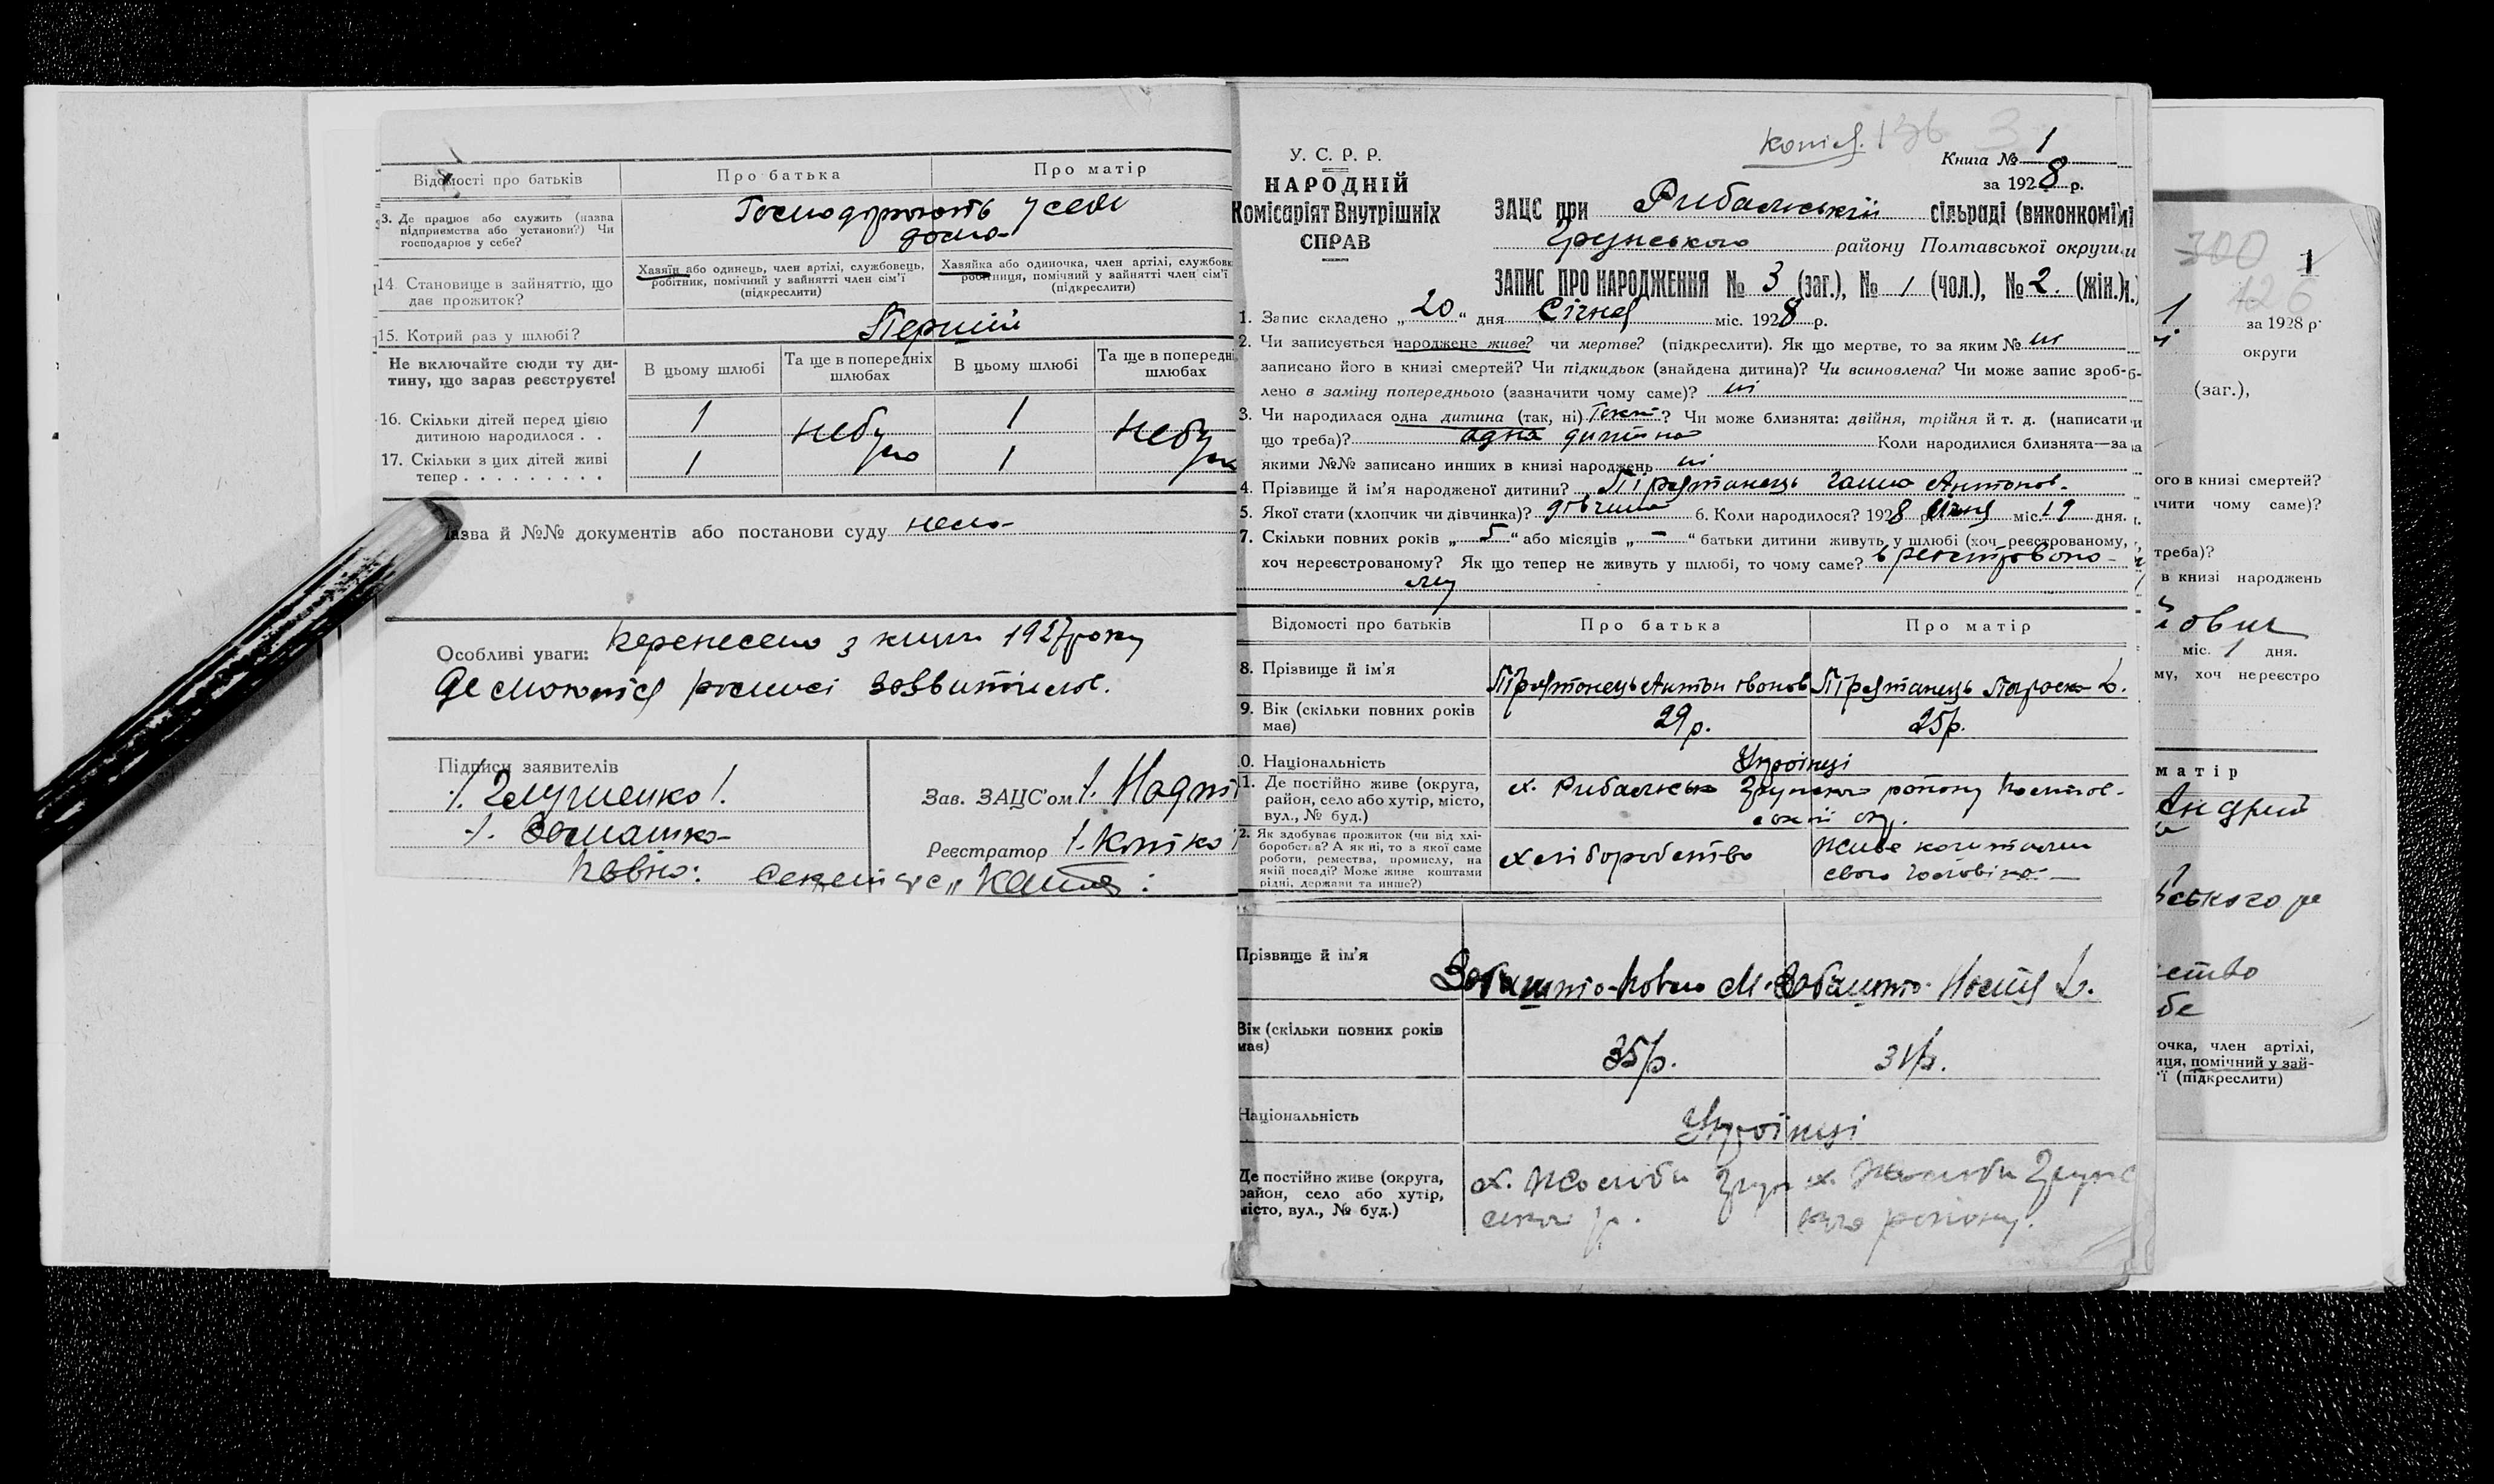 Відомості про батьків
Про батька
Про матір
3. Де працює або служить (назва
підприємства або установи?) Чи
господарює у себе?
у себе
дома
14. Становище в зайняттю, що
дає прожиток?
Хазяїн або одинець, член артілі, службовець,
робітник, помічний у зайнятті член сім'ї
(підкреслити)
Хазяйка або одиночка, член артілі, службовк
робітниця, помічний у зайнятті член сім'ї
(підкреслити)
15. Котрий раз у шлюбі?
Перший
Не включайте сюди ту ди-
тину, що зараз реєструєте!
В цьому шлюбі
Та ще в попередніх
шлюбах
В цьому шлюбі
Та ще в попередні
шлюбах
16. Скільки дітей перед цією
дитиною народилося . .
1
небу
1
небу
17. Скільки з цих дітей живі
тепер . . . . . . . . .
1
ло
1
азва й №№ документів або постанови суду нема
Особливі уваги: Перенесено з книги 1927 року
Підписи заявителів
Зав. ЗАЦС'ом
Реєстратор
У. С. Р. Р.
НАРОДНІЙ
Комісаріят Внутрішніх
СПРАВ
копія.
3
Книга № 1
за 1928 р.
ЗАЦС при Рибальській сільраді (виконкомі)
Грунського району Полтавської округи
ЗАПИС ПРО НАРОДЖЕННЯ № 3 (заг.), № 1 (чол.), № 2. (жін.)
1. Запис складено „20“ дня Січня міс. 1928 р.
2. Чи записується народжене живе? чи мертве? (підкреслити). Як що мертве, то за яким № ні
записано його в книзі смертей? Чи підкидьок (знайдена дитина)? Чи всиновлена? Чи може запис зроб-
лено в заміну попереднього (зазначити чому саме)? ні
3. Чи народилася одна дитина (так, ні) Так? Чи може близнята: двійня, трійня й т. д. (написати
що треба)? одна дитина Коли народилися близнята—за
якими №№ записано инших в книзі народжень ні
4. Прізвище й ім'я народженої дитини? Пірятанець Ганна Антонов.
5. Якої стати (хлопчик чи дівчинка)? дівчина 6. Коли народилось? 1928 р. Січня міс. 19 дня.
7. Скільки повних років „5“ або місяців „-“ батьки дитини живуть у шлюбі (хоч реєстрованому,
хоч нереєстрованому? Як що тепер не живуть у шлюбі, то чому саме? в реєстровано-
му
Відомості про батьків
Про батька
Про матір
8. Прізвище й ім'я
Пірятанець Антон Іванов
Пірятанець Параска
9. Вік (скільки повних років
має)
29 р.
25 р.
0. Національність
Українці
1. Де постійно живе (округа,
район, село або хутір, місто,
вул., № буд.)
х. Рибальське Грунського району Полтав-
ської окр.
2. Як здобуває прожиток (чи від хлі-
боробства? А як ні, то з якої саме
роботи, ремества, промислу, на
якій посаді? Може живе коштами
рідні, держави та инше?)
хліборобство
Живе коштами
свого чоловіка
Прізвище й ім'я
Вік (скільки повних років
має)
35 р.
31 р.
Національність
Українці
Де постійно живе (округа,
район, село або хутір,
місто, вул., № буд.)
300
1
126
1
за 1928 р.
округи
(заг.),
ого в книзі смертей?
ачити чому саме)?
треба)?
в книзі народжень
міс. 1 дня.
му, хоч нереєстро
матір
ського
ство
бе
очка, член артілі,
иця, помічний у зай-
'ї (підкреслити)